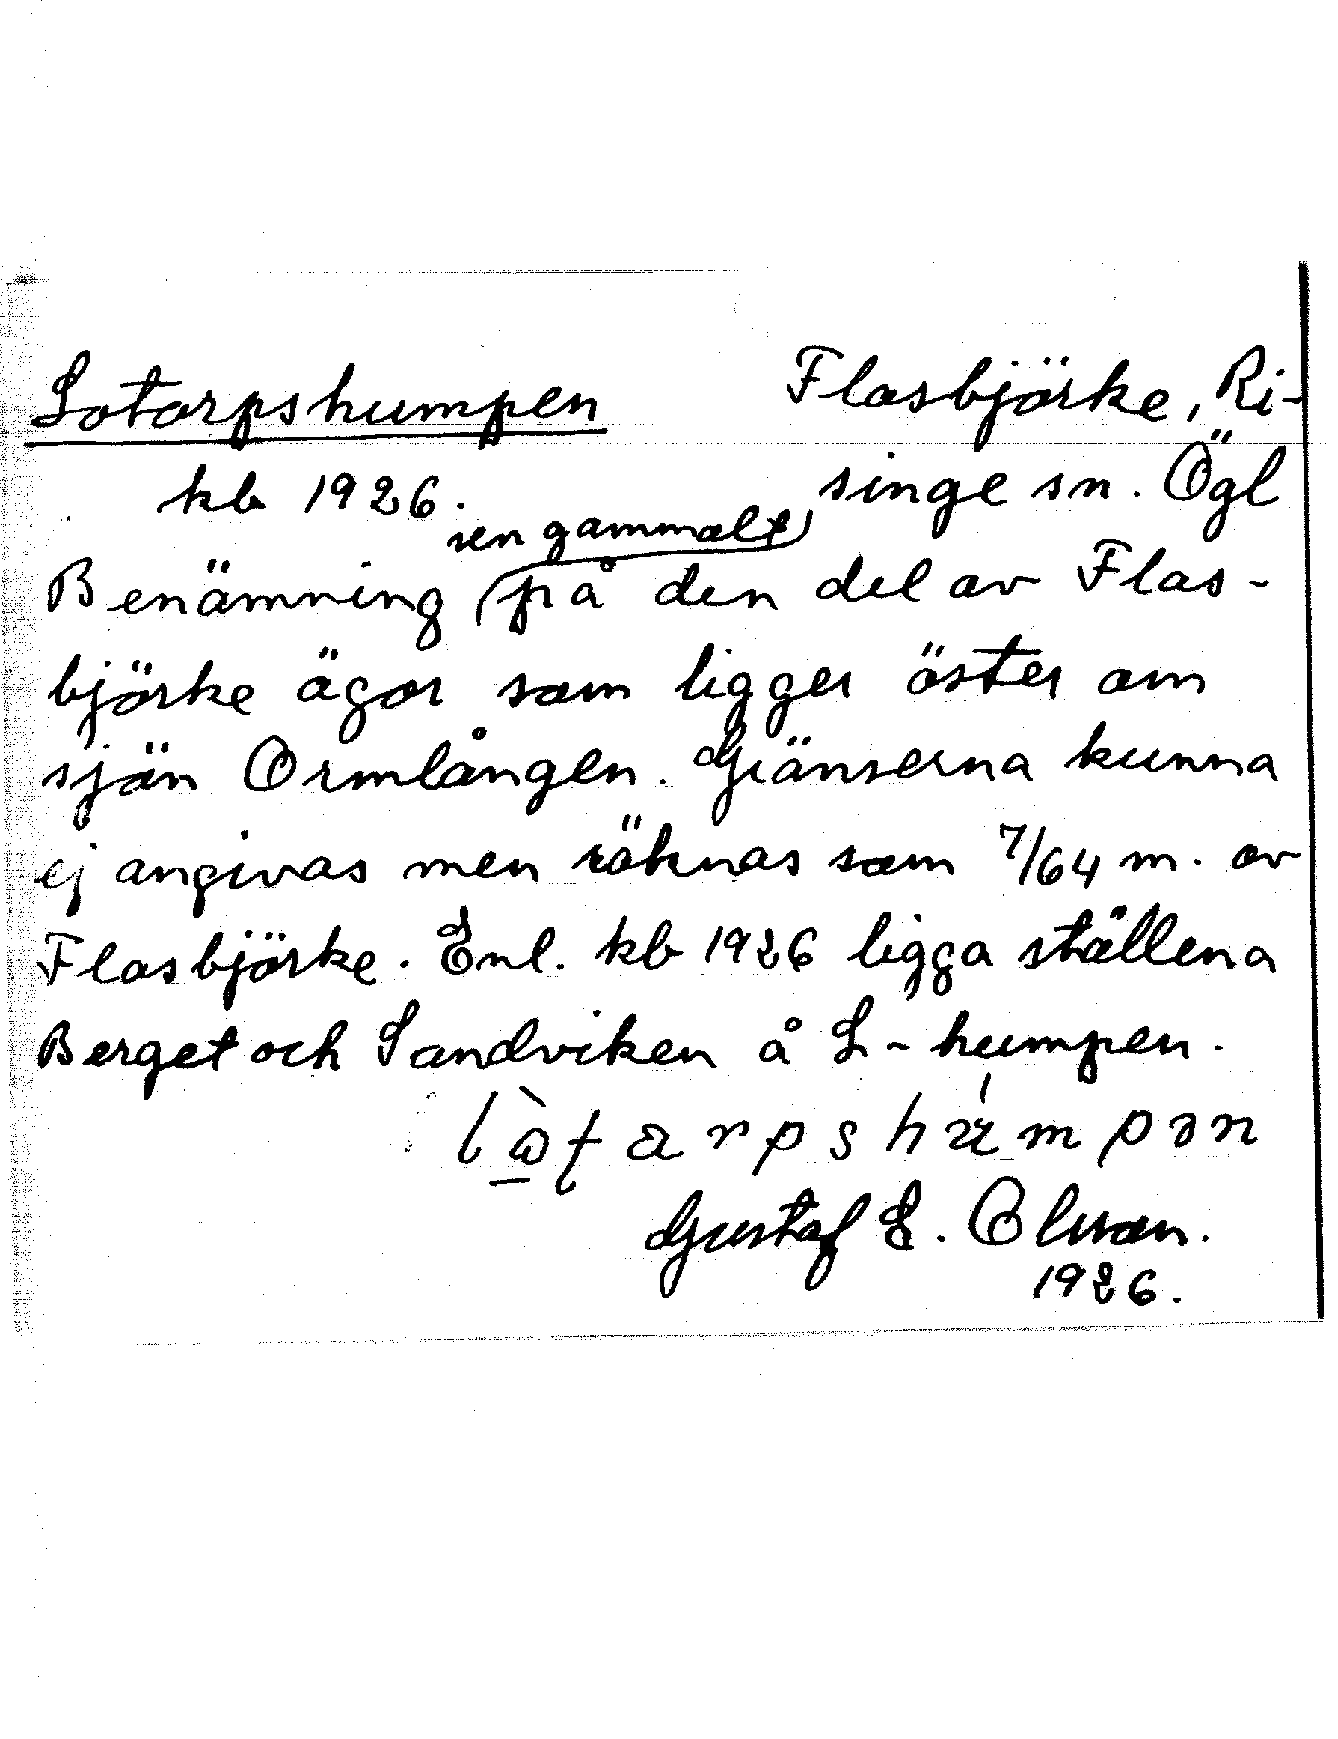 Lotorpshumpen
Flasbjörke, Ri-
singe sn. Ögl
kb 1926.
sen gammalt
Benämning på den del av Flas-
björke ägor som ligger öster om
sjön Ormlången. Gränserna kunna
ej angivas men räknas som 7/64 m. av
Flasbjörke. Enl. kb 1926 ligga ställena
Berget och Sandviken å L-humpen.
Gustaf E. Olsson.
1926.